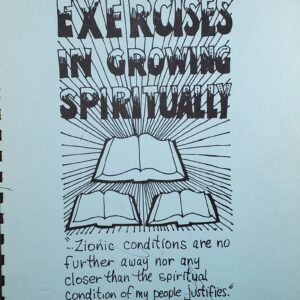 EXERCISES
IN GROWING
SPIRITUALLY
"...Zionic conditions are no
further away nor any
closer than the spiritual
condition of my people justifies."